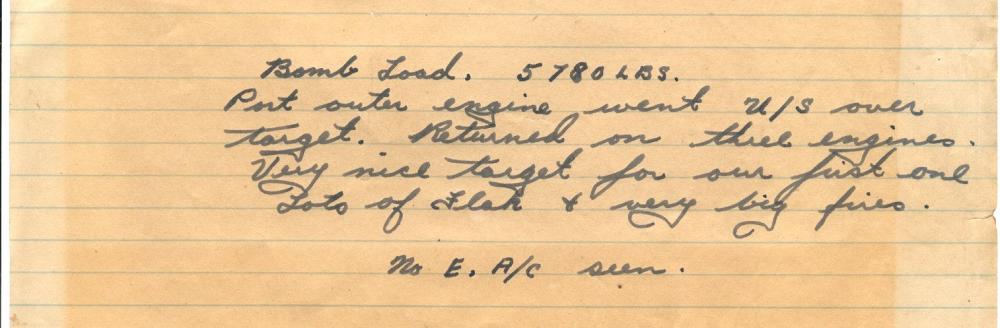 Bomb Load. 5780 LBS.
Port outer engine went U/S over
target. Returned on three engines.
Very nice target for our first one
Lots of Flak & very big fires.
No E. A/C seen.